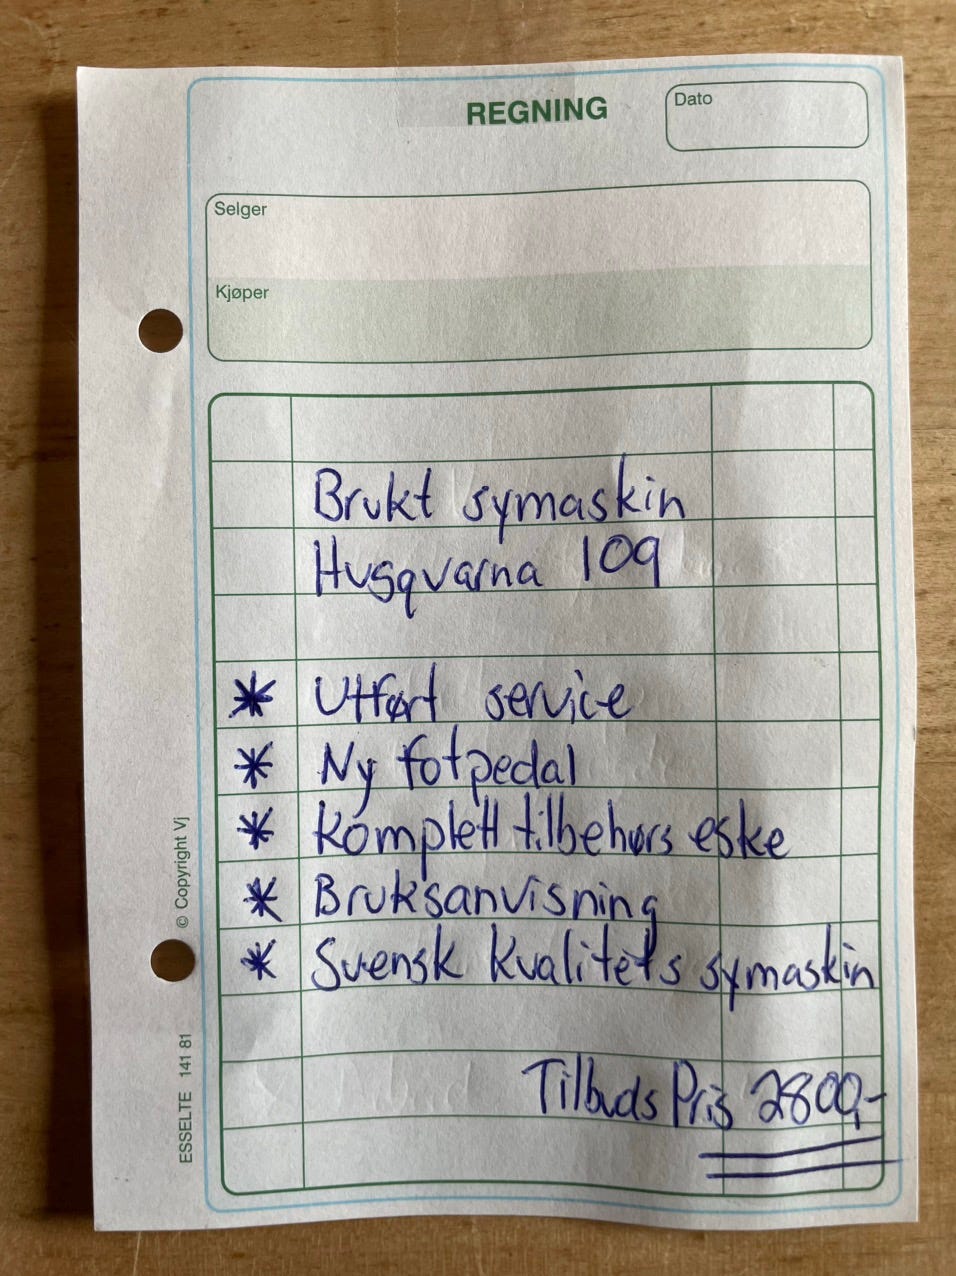 REGNING
Dato
Selger
Kjøper
Brukt symaskin
Husqvarna 109
* Utført service
* Ny fotpedal
* Komplett tilbehørs eske
* Bruksanvisning
* Svensk kvalitets symaskin
Tilbuds Pris 2800,-
ESSELTE 141 81
© Copyright Vj